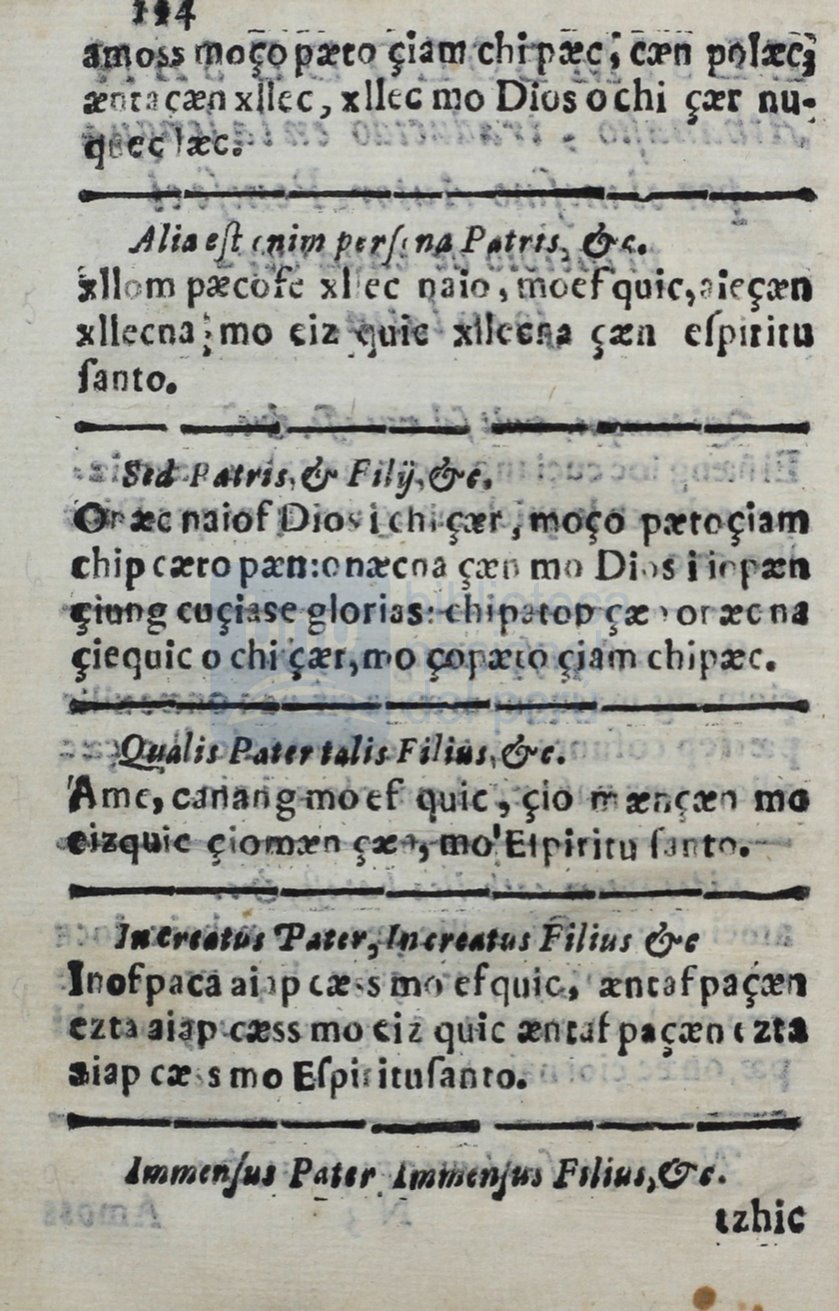 194
amoss moço pæto çiam chi pæc; cæn polæc;
æntaçæn xllec, xllec mo Dios o chi çær nu-
quec læc.
Alia eſt enim perſona Patris, &c.
xllom pæcofe xllec naio, moef quic, aieçæn
xllecna; mo eiz quic xllecna çæn eſpiritu
ſanto.
Sed Patris, & Filij, &c.
Onæc naiof Dios i chi çær, moço pæto çiam
chip cæto pæn: onæcna çæn mo Dios i iopæn
çiung cuçiase glorias: chipatop çæn onæc na
çiequic o chi çær, mo ço pæto çiam chipæc.
Qualis Pater talis Filius, &c.
Ame, canang moef quic, çio mænçæn mo
eizquic çiomæn çæn, mo Eſpiritu ſanto.
Increatus Pater, Increatus Filius &c
Inof paca aiap cæss mo efquic, æntaf paçæn
ezta aiap cæss mo eiz quic æntaf paçæn ezta
aiap cæss mo Eſpirituſanto.
Immenſus Pater Immenſus Filius, &c.
tzhic